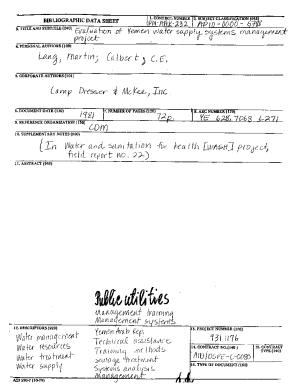 BIBLIOGRAPHIC DATA SHEET
1. CONTROL NUMBER
2. SUBJECT CLASSIFICATION (695)
PN-AAK-232
AP10-0000-G788
3. TITLE AND SUBTITLE (240)
Evaluation of Yemen water supply systems management
project
4. PERSONAL AUTHORS (100)
Lang, Martin; Calbert, C.E.
5. CORPORATE AUTHORS (101)
Camp Dresser & McKee, Inc.
6. DOCUMENT DATE (110)
1981
7. NUMBER OF PAGES (120)
72p.
8. ARC NUMBER (170)
YE 628.7068 L271
9. REFERENCE ORGANIZATION (130)
CDM
10. SUPPLEMENTARY NOTES (500)
(In Water and sanitation for health [WASH] project,
field report no. 22)
11. ABSTRACT (950)
Public utilities
Management training
Management systems
12. DESCRIPTORS (920)
Water management
Water resources
Water treatment
Water supply
Yemen Arab Rep.
Technical assistance
Training methods
Sewage treatment
Systems analysis
Management
13. PROJECT NUMBER (150)
931 1176
14. CONTRACT NO. (140)
AID/DSPE-C-0080
15. CONTRACT
TYPE (140)
16. TYPE OF DOCUMENT (160)
AID 590-7 (10-79)